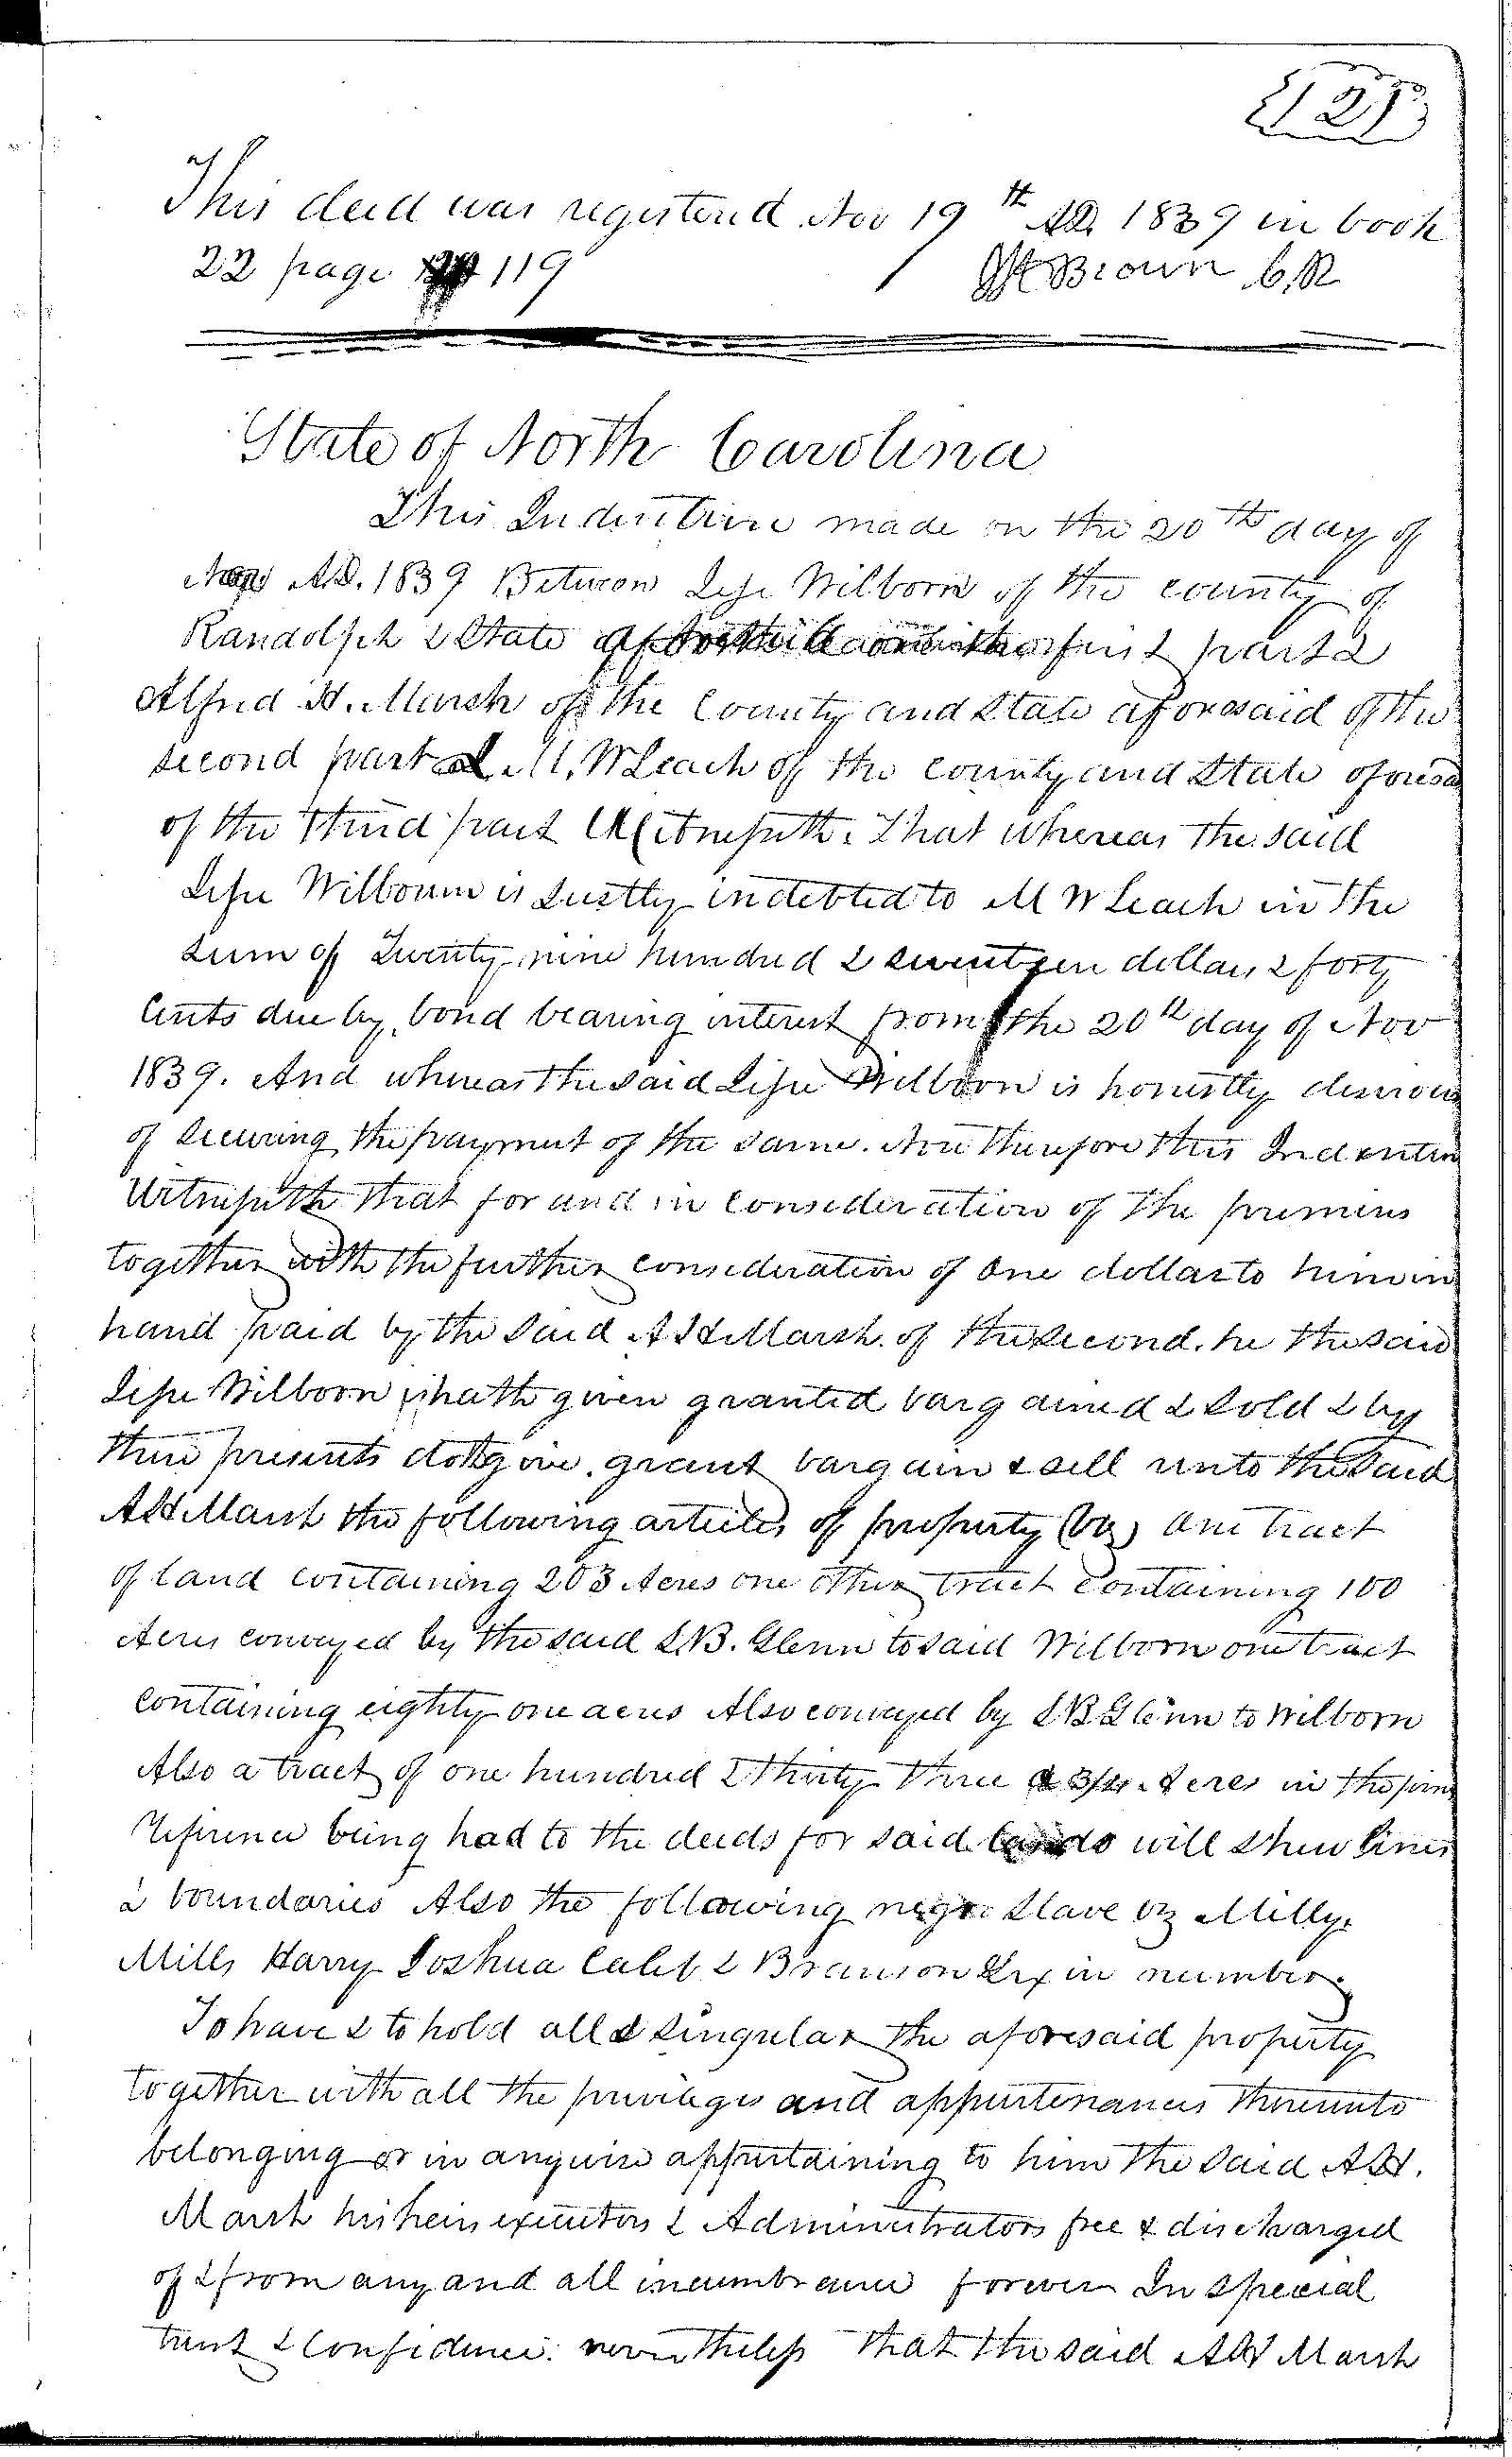 121
This deed was registered Nov 19th AD. 1839 in book
22 page 119 Brown C,R
State of North Carolina
This Indenture made on the 20th day of
Nov A.D. 1839 Between Lesse Wilborn of the county of
Randolph & State first part &
Alfred H. Marsh of the County and State aforesaid of the
second part & M. W Leach of the county and State aforesa
of the third part Witnesseth. That whereas the said
Jesse Wilbourn is Justly indebted to M W Leach in the
sum of Twenty nine hundred & seventeen dollars & forty
Cents due by bond bearing interest from the 20th day of Nov
1839. And whereas the said Jesse Wilborn is honestly desirous
of Securing the payment of the same. Now therefore this Indentur
Witnesseth that for and in Consideration of the premises
together with the further consideration of One dollar to him in
hand paid by the said A H Marsh. of the second. he the said
Jesse Wilborn hath given granted bargained & sold & by
these presents doth give. grant bargain & sell unto the said
A H Marsh the following articles of property (viz) one tract
of land containing 203 Acres one other tract Containing 100
Acres conveyed by the said S.B. Glenn to said Wilborn one tract
Containing eighty one acres Also conveyed by S B Glenn to Wilborn
Also a tract of one hundred & thirty three & 3/4 Acres in the
Reference being had to the deeds for said lands will shew lines
& boundaries Also the following negro Slave viz Milly.
Mills Harry Joshua Caleb & Branson Six in number.
To have & to hold all & singular the aforesaid property
together with all the privileges and appurtenances thereunto
belonging or in anywise appurtaining to him the said A H.
Marsh his heirs executors & Administrators free & discharged
of & from any and all incumbrance forever In special
trust & Confidence. nevertheless that the said A H Marsh